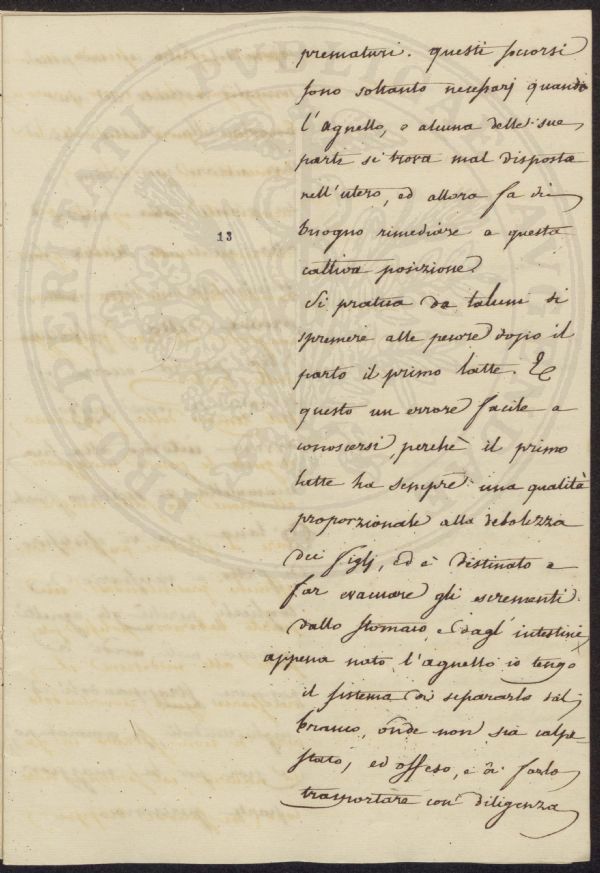 prematuri. questi soccorsi
sono soltanto necessarj quando
l'agnello, o alcuna delle sue
parti si trova mal disposta
nell'utero, ed allora fa di
bisogno rimediare a questa
cattiva posizione.
13
Si pratica da taluni di
spremere alle pecore dopo il
parto il primo latte. È
questo un errore facile a
conoscersi, perchè il primo
latte ha sempre una qualità
proporzionale alla debolezza
dei figlj, ed è distinato a
far evacuare gli escrementi
dallo stomaco, e dagl'intestini
appena nato l'agnello io tengo
il sistema di separarlo dal
branco, onde non sia calpe-
stato, ed offeso, e di farlo
trasportare con diligenza
PROSPERITATI PUBLICAE AUGENDAE